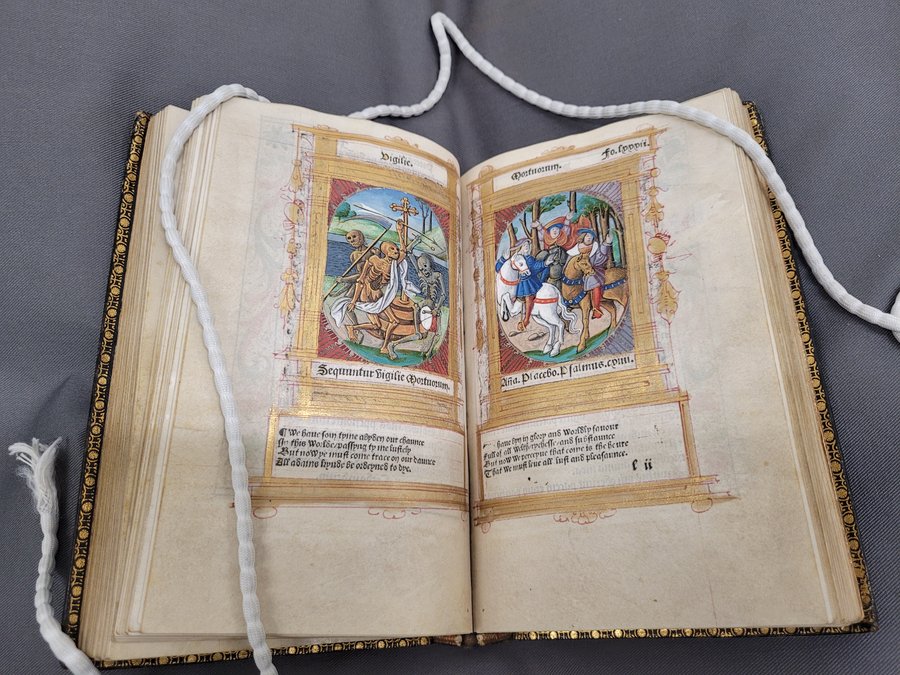 Vigilie.
Sequuntur Vigilie Mortuorum.
¶ We haue soin tyme abyden our chaunce
In this Worlde/passyng tyme lustely
But now ye must come trace on our daunce
All adams kynde be ordeyned to dye.
Mortuorum. Fo. lxxxii.
Aña. Placebo. Psalmus. cxiiii.
haue lyn in glory and Worldly fauour
Full of all and substaunce
But now We perceyue that come is the houre
That We must leue all lust and pleasaunce.
l ii